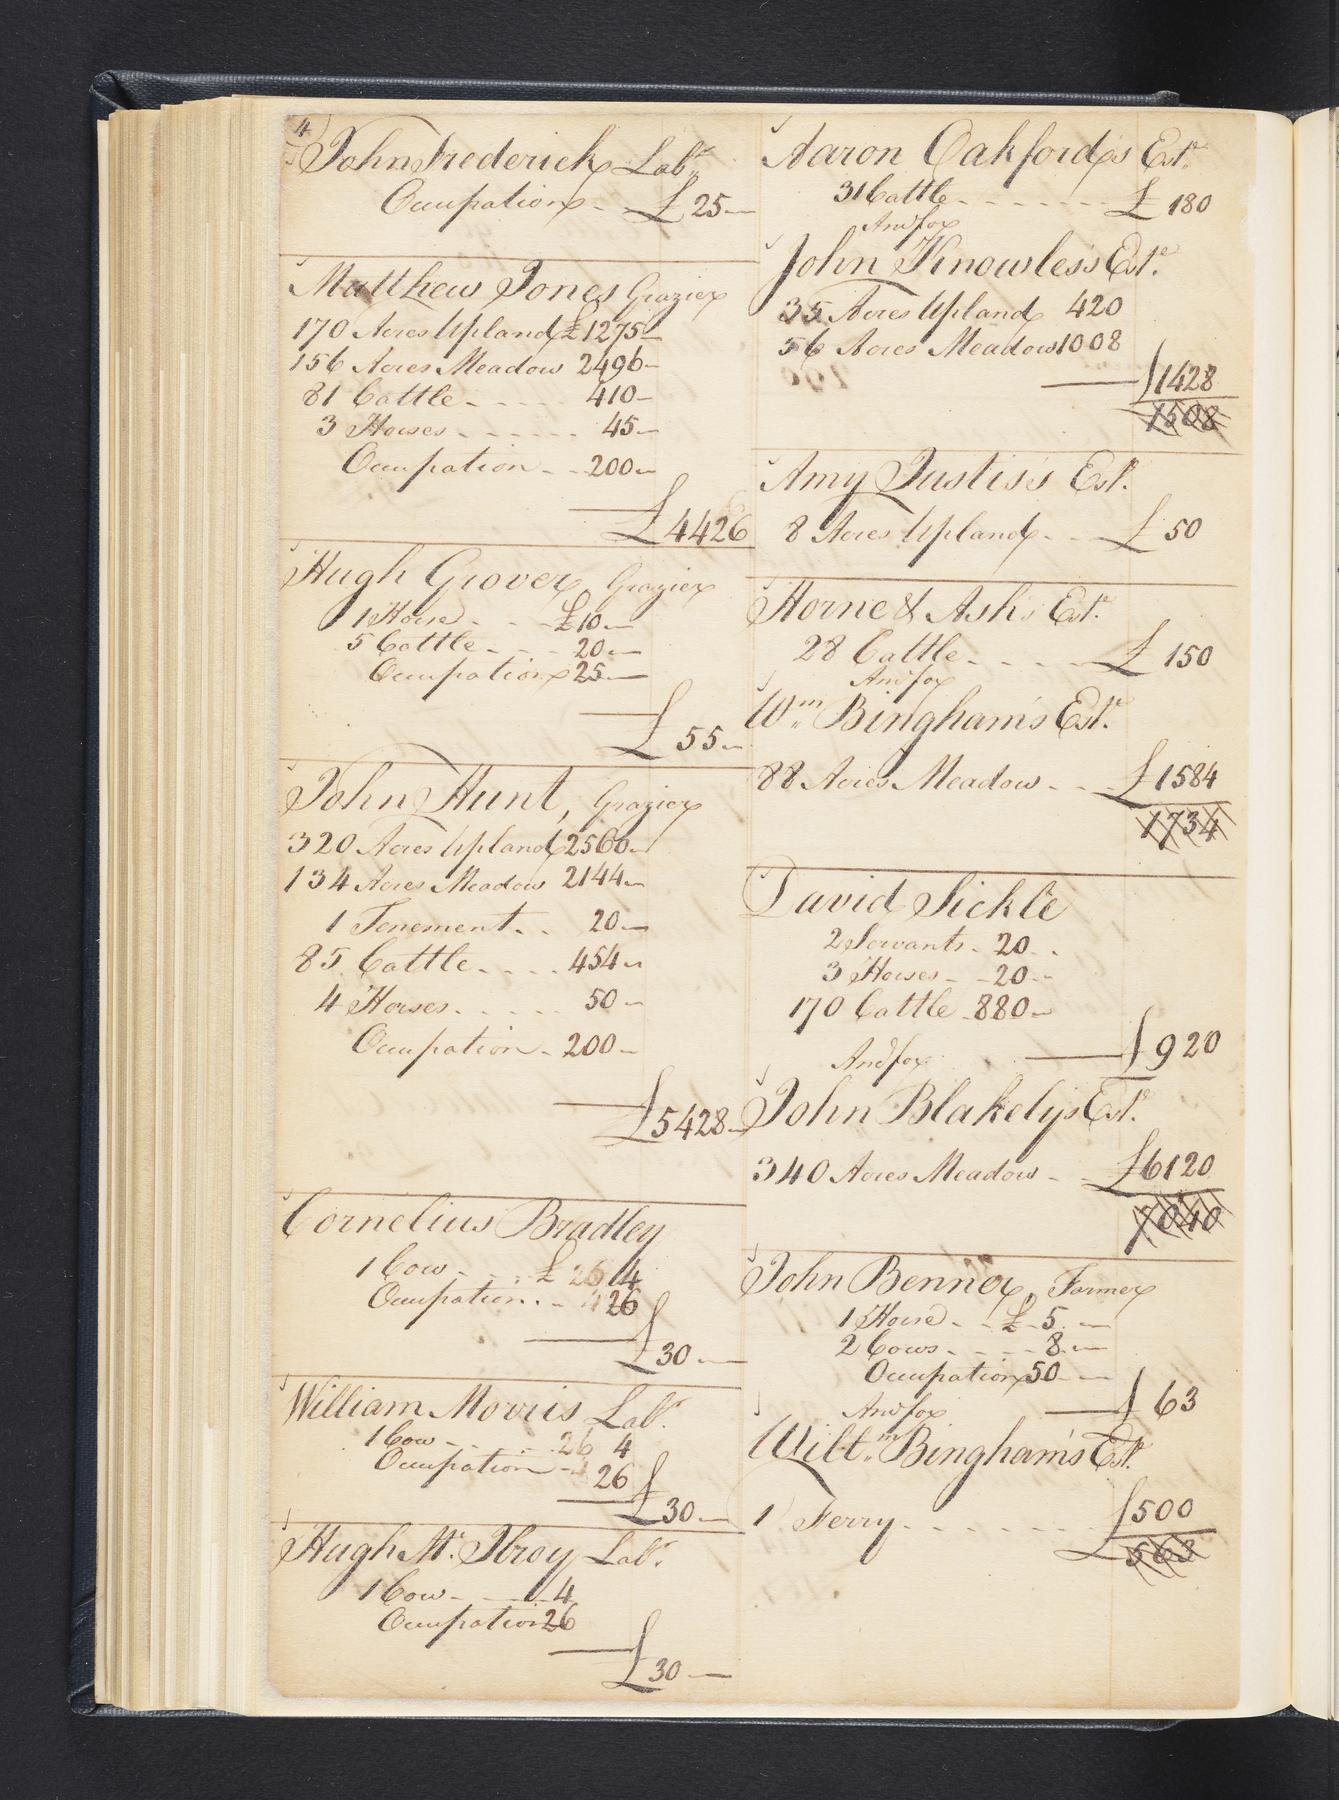 4
John Frederick Labr
Occupation - - £ 25 -
Matthew Jones Grazier
170 Acres Upland £1275 -
156 Acres Meadow 2496 -
81 Cattle - - - - 410 -
3 Horses - - - - - - 45 -
Occupation - - 200 -
£ 4426
Hugh Grover, Grazier
1 Horse - - £10 -
5 Cattle - - - 20 -
Occupation 25 -
£ 55 -
John Hunt, Grazier
320 Acres Upland 2560 -
134 Acres Meadow 2144 -
1 Tenement - - 20 -
85 Cattle - - - - 454 -
4 Horses - - - - - 50 -
Occupation - 200 -
£5428 -
Cornelius Bradley
1 Cow - - - £ 4
Occupation - - 26
£ 30 -
William Morris Labr
1 Cow - - - - 4
Occupation - 26
£ 30 -
Hugh Mc Ilroy Labr
1 Cow - - 4
Occupation 26
£ 30 -
Aaron Oakford's Este
31 Cattle - - - - - - - £ 180
And for
John Knowles's Este
35 Acres Upland 420
56 Acres Meadow 1008
1428
1508
Amy Justis's Este
8 Acres Upland - - £ 50
Horne & Ash's Este
28 Cattle - - - - - £ 150
And for
Wm Bingham's Este
88 Acres Meadow - - £1584
1734
David Sickle
2 Servants - 20 - -
3 Horses - - 20 - -
170 Cattle - 880 -
920
And for
John Blakely's Este
340 Acres Meadow - - £6120
7040
John Benner, Farmer
1 Horse - - £ 5 -
2 Cows - - - - 8 -
Occupation 50 -
63
And for
Willm Bingham's Este
1 Ferry - - - - - - - £500
563